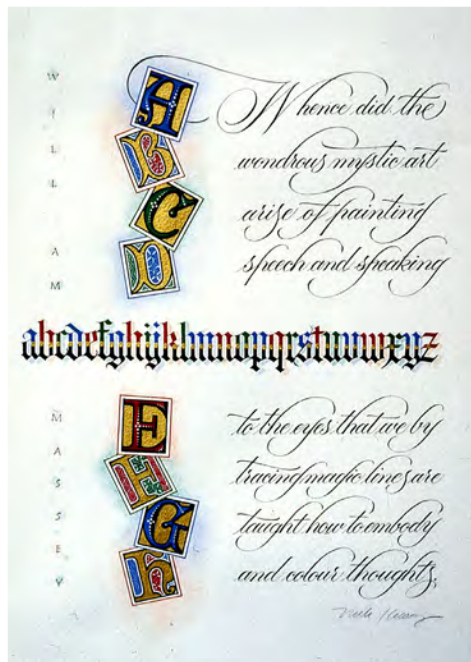 WILLIAM
A
B
C
D
Whence did the
wondrous mystic art
arise of painting
speech and speaking
abcdefghijklmnopqrstuvwxyz
MASSEY
E
F
G
H
to the eyes that we by
tracing magic lines are
taught how to embody
and colour thoughts,